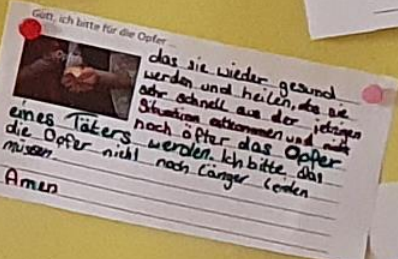 Gott, ich bitte für die Opfer ...
das sie wieder gesund
werden und heilen, das sie
sehr schnell aus der jetzigen
Situation entkommen und nicht
noch öfter das Opfer
eines Täters werden. Ich bitte, das
die Opfer nicht noch länger leiden
müssen.
Amen